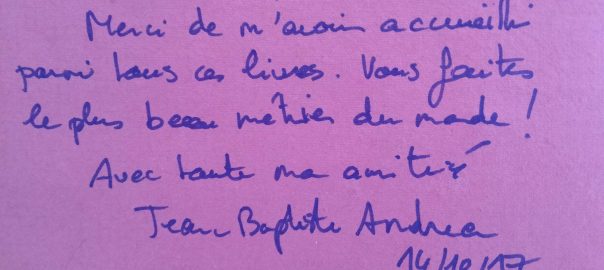 Merci de m'avoir accueilli
parmi tous ces livres. Vous faites
le plus beau métier du monde !
Avec toute ma amitié
Jean-Baptiste Andrea
14/10/17